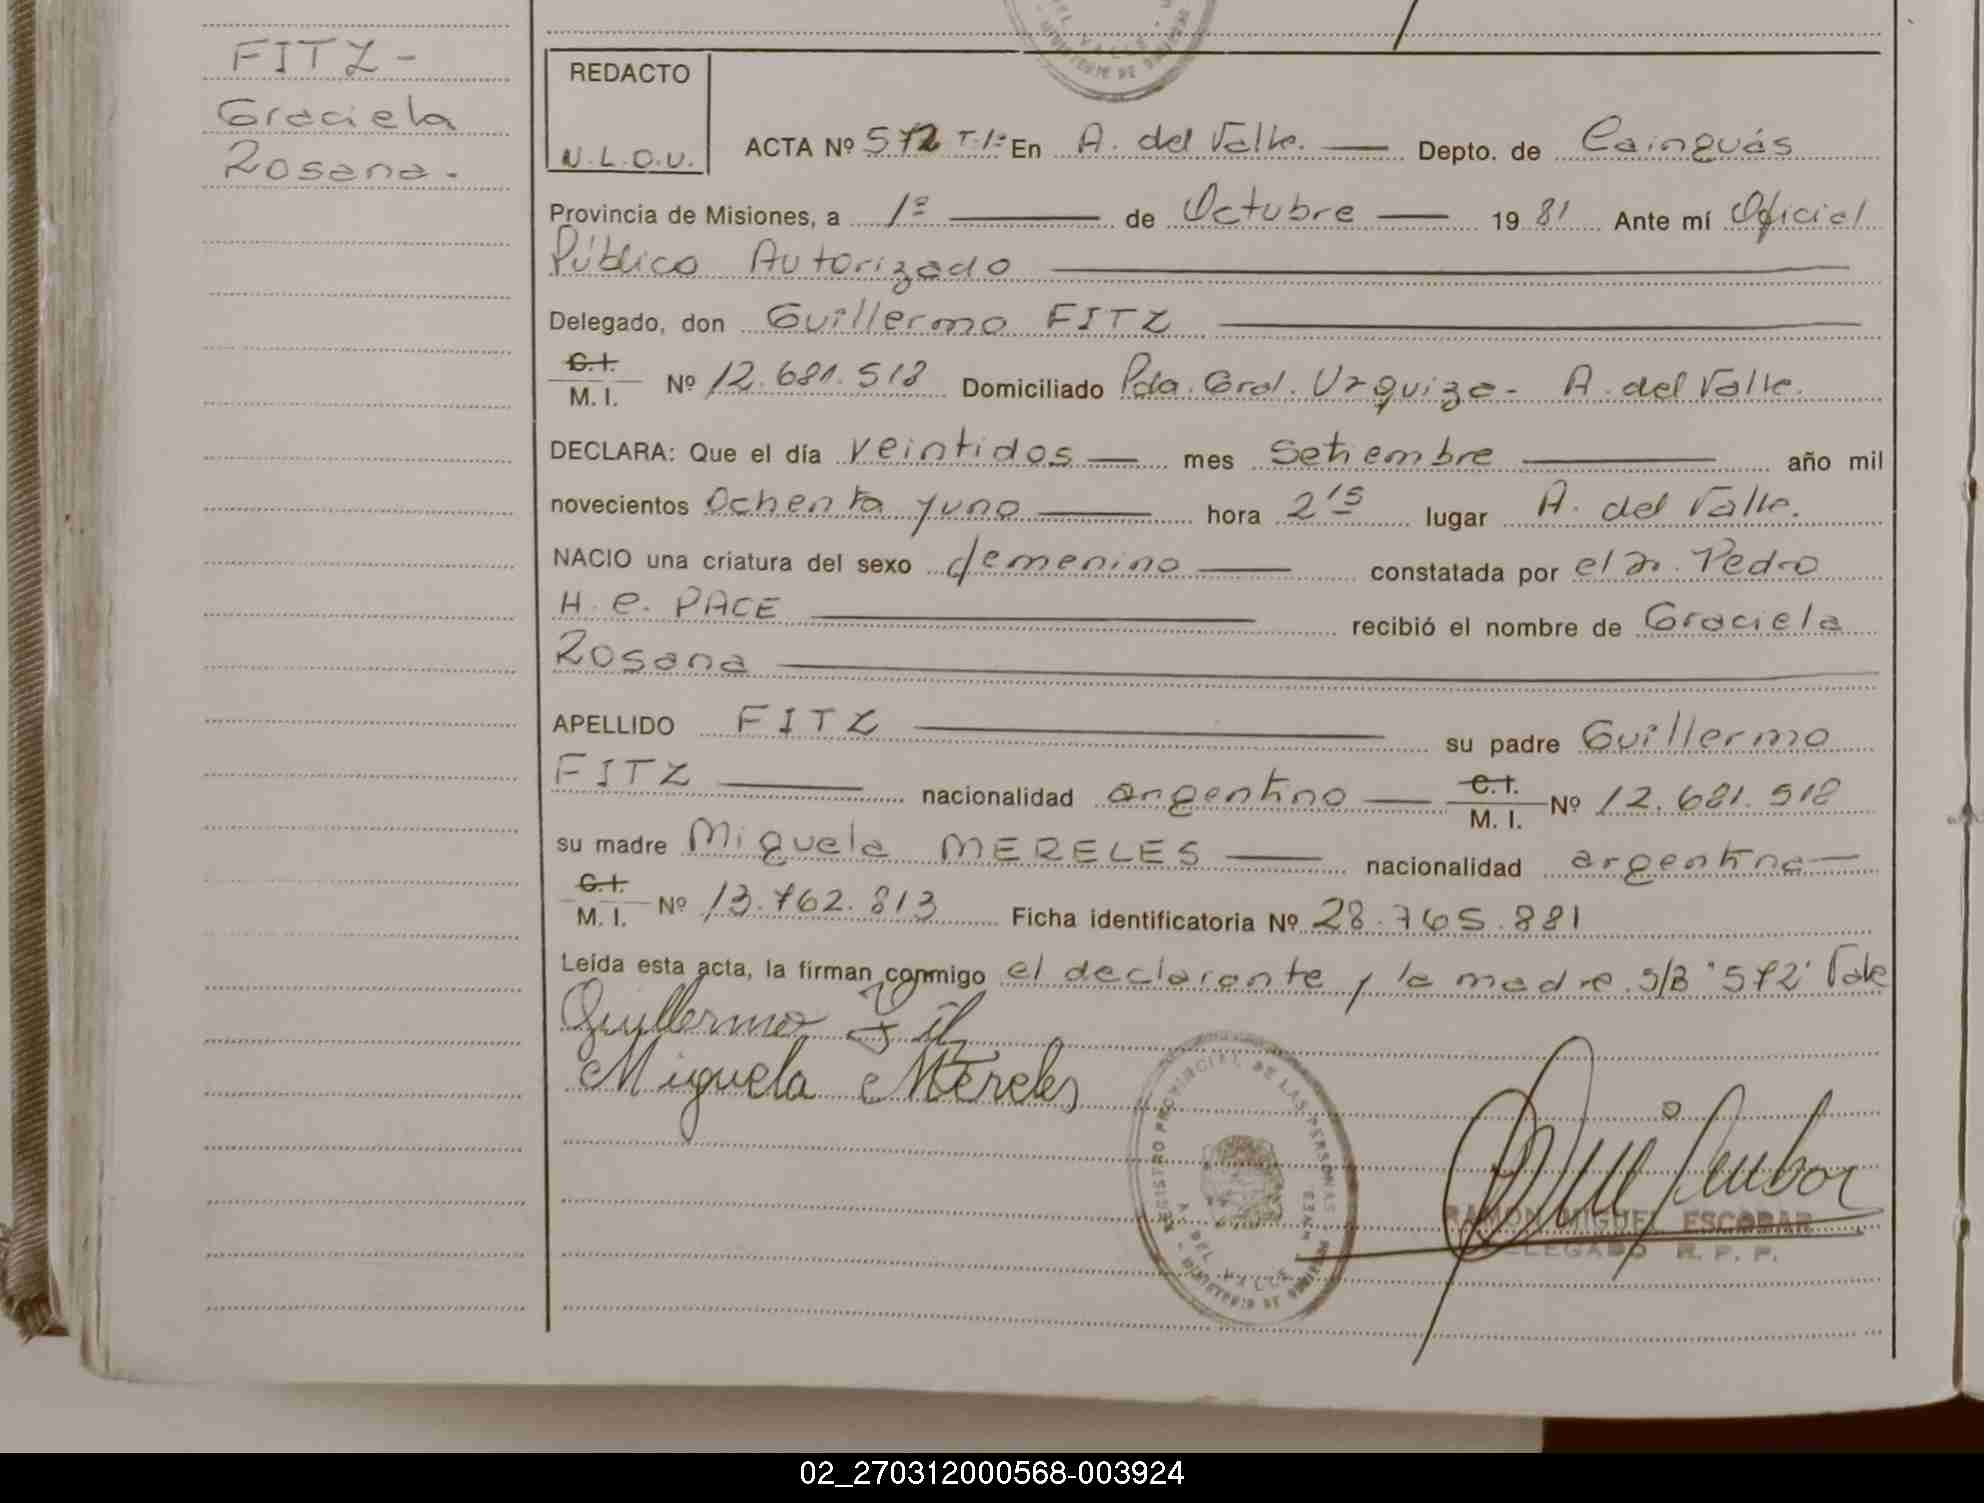 FITZ -
Graciela
Rosana -
REDACTO
N.L.O.U.
ACTA Nº 572 T.1º En A. del Valle. — Depto. de Cainguás
Provincia de Misiones, a 1º — de Octubre — 19 81 Ante mí Oficial
Público Autorizado —
Delegado, don Guillermo FITZ —
C.I.
M. I. Nº 12.681.518 Domiciliado Pda. Gral. Urquiza - A. del Valle.
DECLARA: Que el día veintidos — mes Setiembre — año mil
novecientos Ochenta y uno — hora 2 15 lugar A. del Valle.
NACIO una criatura del sexo femenino — constatada por el Dr. Pedro
H. C. PACE — recibió el nombre de Graciela
Rosana —
APELLIDO FITZ — su padre Guillermo
FITZ — nacionalidad argentino — C.I.
M. I. Nº 12.681.518
su madre Miguela MERELES — nacionalidad argentina —
C.I.
M. I. Nº 13.762.813 Ficha identificatoria Nº 28.765.881
Leída esta acta, la firman conmigo el declarante y la madre. S/B "572" Vale
Guillermo Fitz
Miguela Mereles
REGISTRO PROVINCIAL DE LAS PERSONAS
A. DEL VALLE
RAMON MIGUEL ESCOBAR
DELEGADO R. P. P.
02_270312000568-003924